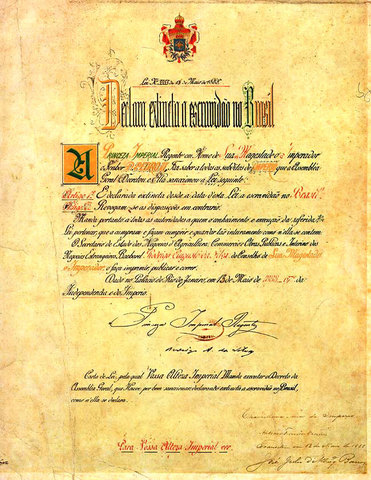 Lei Nº 3353 de 13 de Maio de 1888.
Declara extincta a escravidão no Brasil.
A PRINCEZA IMPERIAL Regente em Nome de Sua Magestade o Imperador
o Senhor D. PEDRO II Faz saber a todos os subditos do IMPERIO que a Assembléa
Geral Decretou e Ella sanccionou a Lei seguinte:
Artigo 1º É declarada extincta desde a data d'esta Lei a escravidão no Brazil.
Artigo 2º Revogam-se as disposições em contrario.
Manda portanto a todas as autoridades a quem o conhecimento e execução da referida
Lei pertencer, que a cumpram e façam cumprir e guardar tão inteiramente como n'ella se contem.
O Secretario de Estado dos Negocios d'Agricultura, Commercio e Obras Publicas e Interino dos
Negocios Estrangeiros, Bacharel Rodrigo Augusto da Silva, do Conselho de Sua Magestade
o Imperador, o faça imprimir, publicar e correr.
Dado no Palacio do Rio de Janeiro, em 13 de Maio de 1888, 67º da
Independencia e do Imperio.
Princeza Imperial Regente
Rodrigo A. da Silva
Carta de Lei, pela qual Vossa Alteza Imperial Manda executar o Decreto da
Assembléa Geral, que Houve por bem sanccionar, declarando extincta a escravidão no Brazil,
como n'ella se declara.
Para Vossa Alteza Imperial ver.